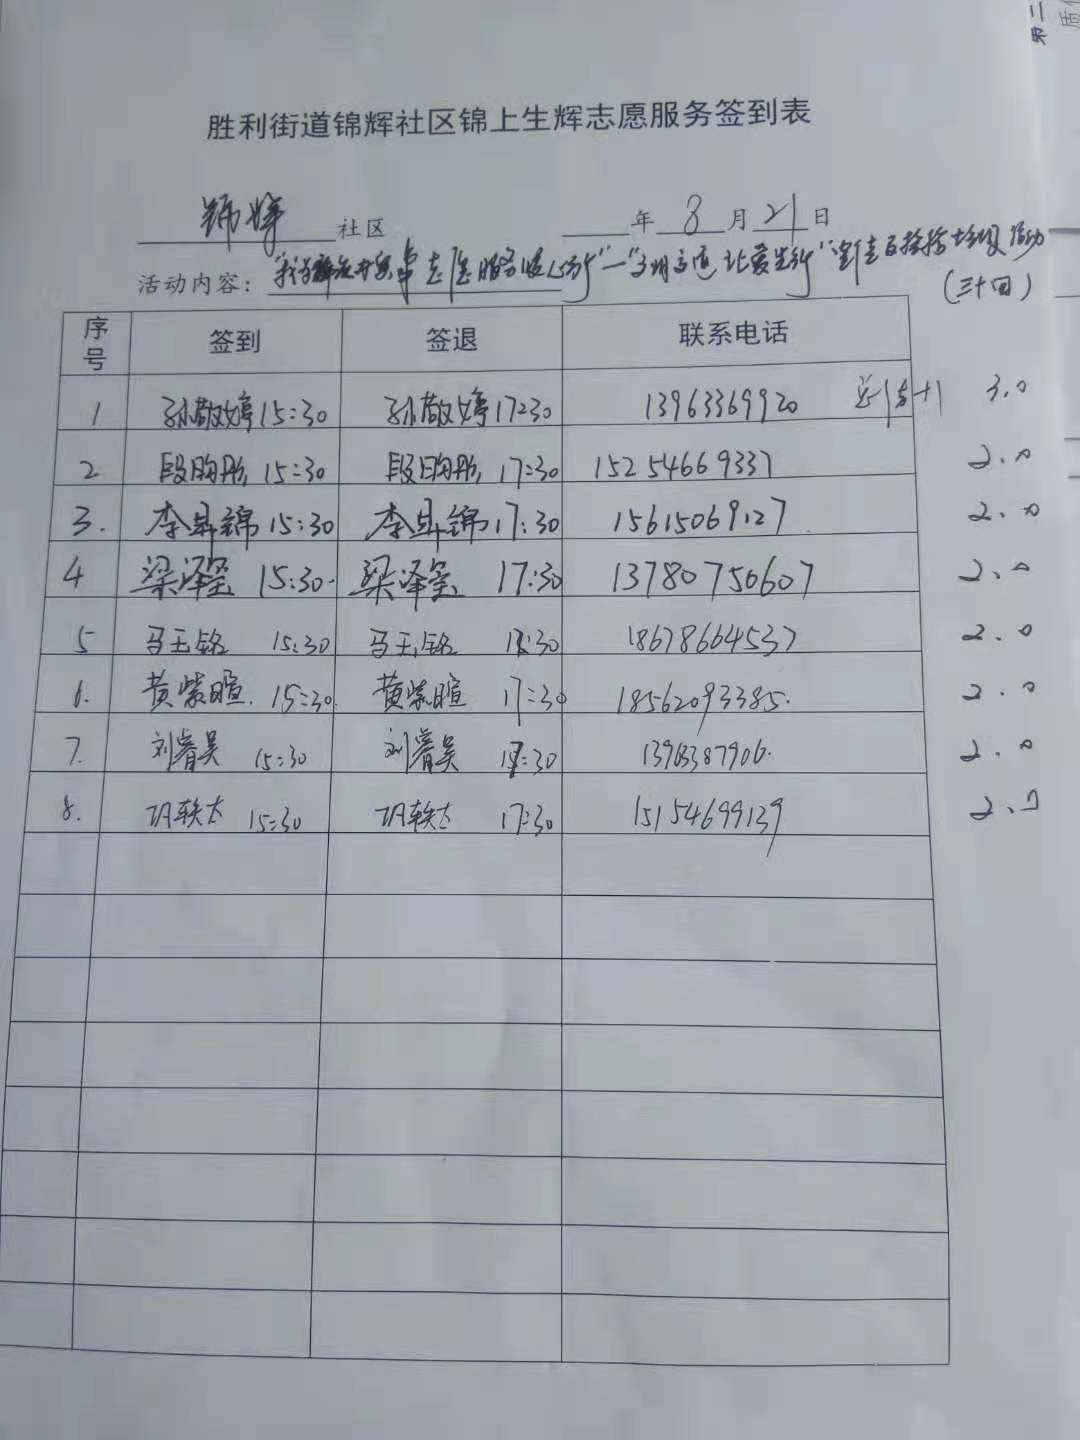 胜利街道锦辉社区锦上生辉志愿服务签到表
锦辉 社区 年 8 月 21 日
活动内容： 志愿服务 文明交通 让爱先行
(三十四)
序号 签到 签退 联系电话
1 孙敬婷 15:30 孙敬婷 17:30 13963369920 3.0
2 段昫彤 15:30 段昫彤 17:30 15254669337 2.0
3. 李昇锦 15:30 李昇锦 17:30 15615069127 2.0
4 梁泽玺 15:30 梁泽玺 17:30 13780750607 2.0
5 马玉铭 15:30 马玉铭 17:30 18678664537 2.0
6. 黄紫暄 15:30 黄紫暄 17:30 18562093385 2.0
7. 刘睿昊 15:30 刘睿昊 17:30 2.0
8. 15:30 17:30 15154699139 2.0